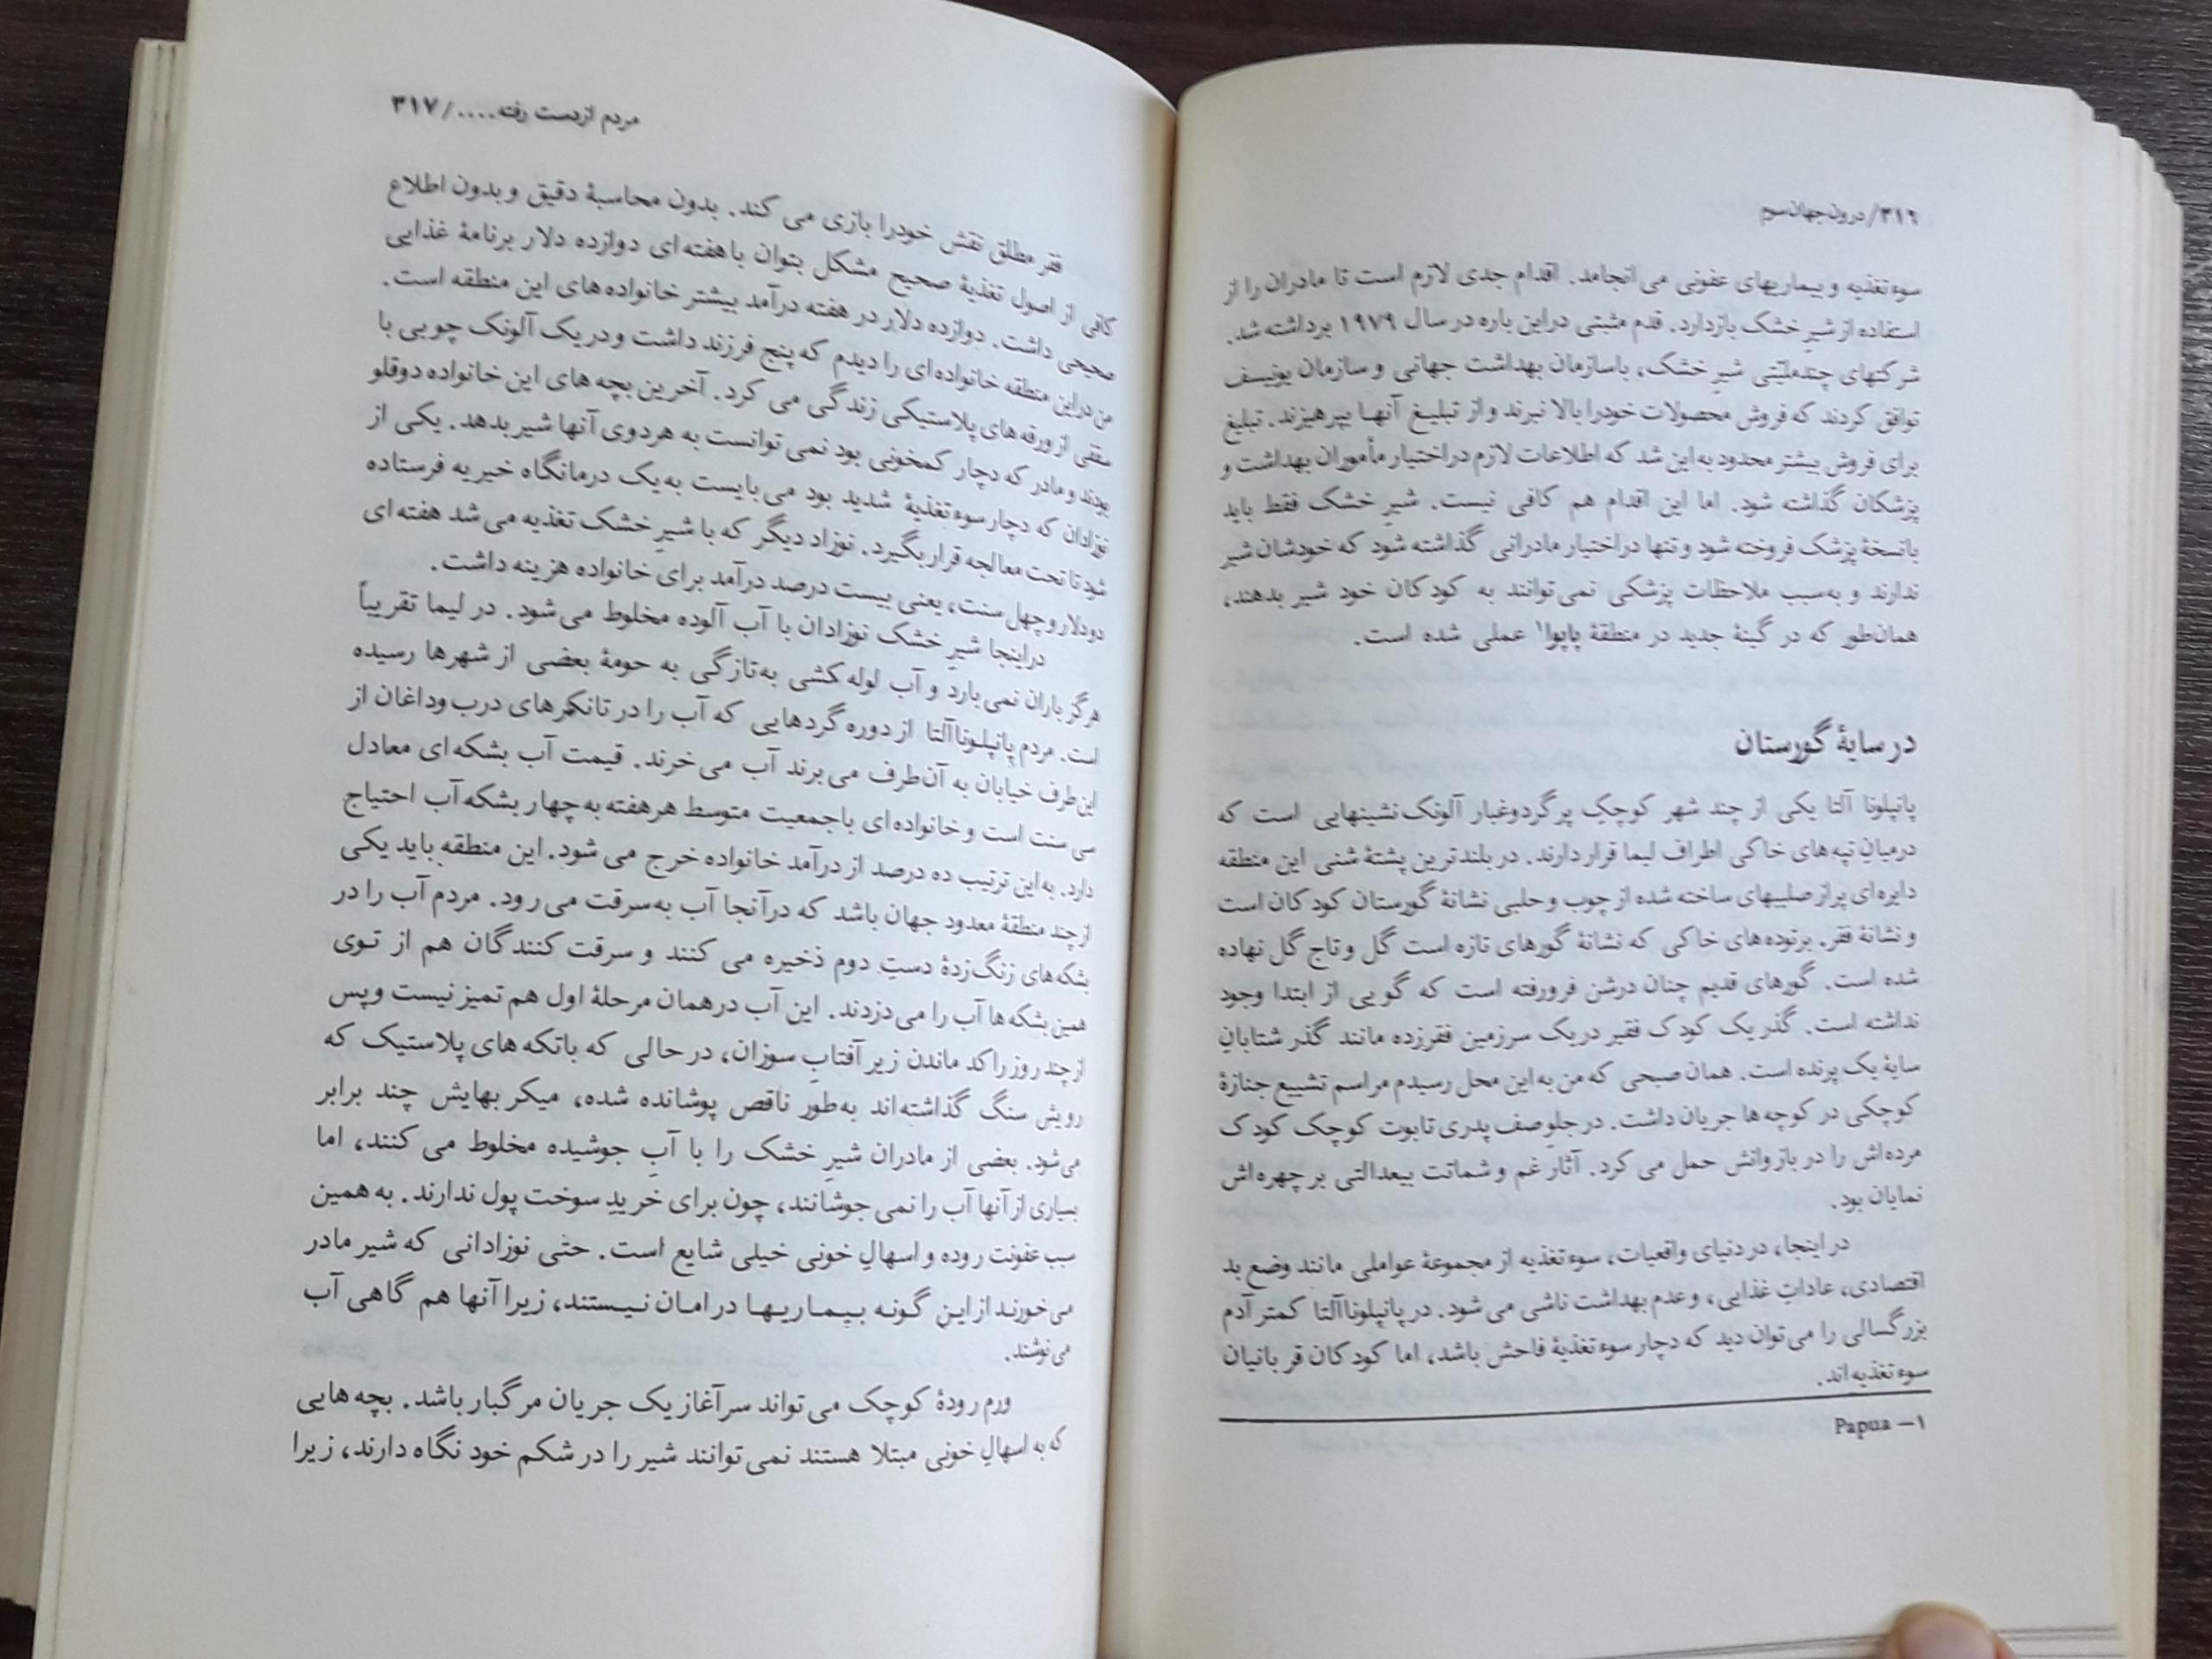 ۳۱۶/ درون جهان سوم
سوء تغذیه و بیماریهای عفونی می انجامد. اقدام جدی لازم است تا مادران را از
استفاده از شیرِ خشک بازدارد. قدم مثبتی دراین باره در سال ۱۹۷۹ برداشته شد.
شرکتهای چندملیّتی شیرِ خشک، باسازمان بهداشت جهانی و سازمان یونیسف
توافق کردند که فروش محصولات خودرا بالا نبرند و از تبلیغ آنها بپرهیزند. تبلیغ
برای فروش بیشتر محدود به این شد که اطلاعات لازم دراختیار مأموران بهداشت و
پزشکان گذاشته شود. اما این اقدام هم کافی نیست. شیرِ خشک فقط باید
بانسخهٔ پزشک فروخته شود و تنها دراختیار مادرانی گذاشته شود که خودشان شیر
ندارند و به سبب ملاحظات پزشکی نمی توانند به کودکان خود شیر بدهند،
همان طور که در گینهٔ جدید در منطقهٔ پاپوا۱ عملی شده است.
در سایهٔ گورستان
پانپلونا آلتا یکی از چند شهر کوچکِ پرگردوغبار آلونک نشینهایی است که
درمیانِ تپه های خاکی اطراف لیما قرار دارند. در بلندترین پشتهٔ شنی این منطقه
دایره ای پراز صلیبهای ساخته شده از چوب و حلبی نشانهٔ گورستان کودکان است
و نشانهٔ فقر. برتوده های خاکی که نشانهٔ گورهای تازه است گل و تاج گل نهاده
شده است. گورهای قدیم چنان درشن فرورفته است که گویی از ابتدا وجود
نداشته است. گذر یک کودک فقیر دریک سرزمین فقرزده مانند گذر شتابانِ
سایهٔ یک پرنده است. همان صبحی که من به این محل رسیدم مراسم تشییع جنازهٔ
کوچکی در کوچه ها جریان داشت. در جلوِ صف پدری تابوت کوچک کودک
مرده اش را در بازوانش حمل می کرد. آثار غم و شماتت بیعدالتی بر چهره اش
نمایان بود.
در اینجا، در دنیای واقعیات، سوء تغذیه از مجموعهٔ عواملی مانند وضع بد
اقتصادی، عاداتِ غذایی، و عدم بهداشت ناشی می شود. در پانپلونا آلتا کمتر آدم
بزرگسالی را می توان دید که دچار سوء تغذیهٔ فاحش باشد، اما کودکان قربانیان
سوء تغذیه اند.
۱— Papua
مردم ازدست رفته..../ ۳۱۷
فقر مطلق نقش خودرا بازی می کند. بدون محاسبهٔ دقیق و بدون اطلاع
کافی از اصول تغذیهٔ صحیح مشکل بتوان با هفته ای دوازده دلار برنامهٔ غذایی
صحیحی داشت. دوازده دلار در هفته درآمد بیشتر خانواده های این منطقه است.
من دراین منطقه خانواده ای را دیدم که پنج فرزند داشت و در یک آلونک چوبی با
سقفی از ورقه های پلاستیکی زندگی می کرد. آخرین بچه های این خانواده دوقلو
بودند و مادر که دچار کمخونی بود نمی توانست به هردوی آنها شیر بدهد. یکی از
نوزادان که دچار سوء تغذیهٔ شدید بود می بایست به یک درمانگاه خیریه فرستاده
شود تا تحت معالجه قرار بگیرد. نوزاد دیگر که با شیرِ خشک تغذیه می شد هفته ای
دودلار و چهل سنت، یعنی بیست درصد درآمد برای خانواده هزینه داشت.
دراینجا شیرِ خشک نوزادان با آب آلوده مخلوط می شود. در لیما تقریباً
هرگز باران نمی بارد و آب لوله کشی به تازگی به حومهٔ بعضی از شهرها رسیده
است. مردم پانپلونا آلتا از دوره گردهایی که آب را در تانکرهای درب وداغان از
این طرف خیابان به آن طرف می برند آب می خرند. قیمت آب بشکه ای معادل
سی سنت است و خانواده ای با جمعیت متوسط هرهفته به چهار بشکه آب احتیاج
دارد. به این ترتیب ده درصد از درآمد خانواده خرج می شود. این منطقه باید یکی
از چند منطقهٔ معدود جهان باشد که درآنجا آب به سرقت می رود. مردم آب را در
بشکه های زنگ زدهٔ دستِ دوم ذخیره می کنند و سرقت کنندگان هم از توی
همین بشکه ها آب را می دزدند. این آب درهمان مرحلهٔ اول هم تمیز نیست و پس
از چند روز راکد ماندن زیر آفتابِ سوزان، در حالی که باتکه های پلاستیک که
رویش سنگ گذاشته اند به طور ناقص پوشانده شده، میکربهایش چند برابر
می شود. بعضی از مادران شیرِ خشک را با آبِ جوشیده مخلوط می کنند، اما
بسیاری از آنها آب را نمی جوشانند، چون برای خریدِ سوخت پول ندارند. به همین
سبب عفونت روده و اسهالِ خونی خیلی شایع است. حتّی نوزادانی که شیر مادر
می خورند از این گونه بیماریها در امان نیستند، زیرا آنها هم گاهی آب
می نوشند.
ورم رودهٔ کوچک می تواند سرآغاز یک جریان مرگبار باشد. بچه هایی
که به اسهالِ خونی مبتلا هستند نمی توانند شیر را در شکم خود نگاه دارند، زیرا